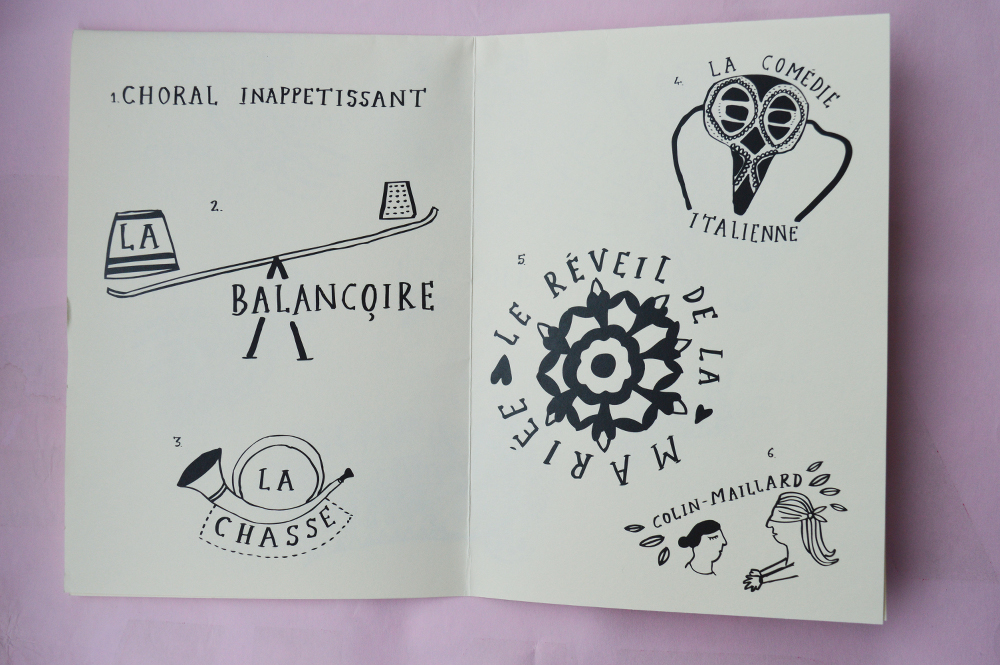 1. CHORAL INAPPETISSANT
2.
LA
BALANÇOIRE
3.
LA
CHASSE
4.
LA COMÉDIE
ITALIENNE
5.
LE RÉVEIL DE LA
MARIÉE
6.
COLIN-MAILLARD